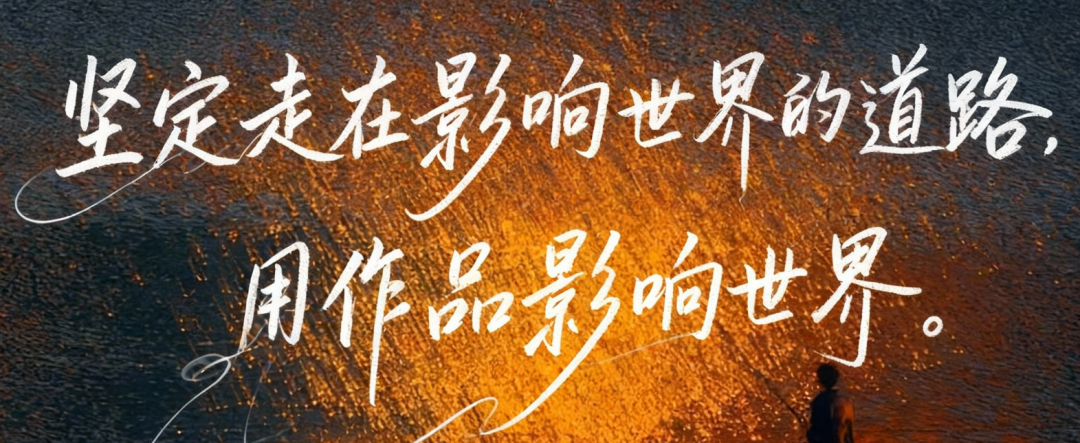 坚定走在影响世界的道路,
用作品影响世界。